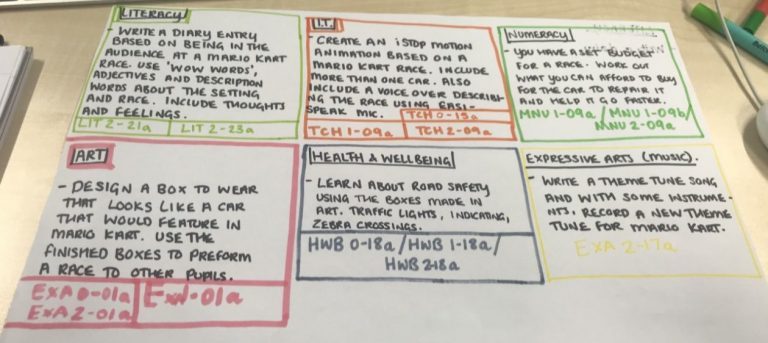 LITERACY
- WRITE A DIARY ENTRY
BASED ON BEING IN THE
AUDIENCE AT A MARIO KART
RACE. USE 'WOW WORDS',
ADJECTIVES AND DESCRIPTION
WORDS ABOUT THE SETTING
AND RACE. INCLUDE THOUGHTS
AND FEELINGS.
LIT 2-21a
LIT 2-23a
I.T.
- CREATE AN iSTOP MOTION
ANIMATION BASED ON A
MARIO KART RACE. INCLUDE
MORE THAN ONE CAR. ALSO
INCLUDE A VOICE OVER DESCRIBI-
NG THE RACE USING EASI-
SPEAK MIC.
TCH 0-15a
TCH 1-09a
TCH 2-09a
NUMERACY
- YOU HAVE A SET BUDGET
FOR A RACE. WORK OUT
WHAT YOU CAN AFFORD TO BUY
FOR THE CAR TO REPAIR IT
AND HELP IT GO FASTER.
MNU 1-09a / MNU 1-09b/
MNU 2-09a
ART
- DESIGN A BOX TO WEAR
THAT LOOKS LIKE A CAR
THAT WOULD FEATURE IN
MARIO KART. USE THE
FINISHED BOXES TO PREFORM
A RACE TO OTHER PUPILS.
EXA 0-01a
EXA 1-01a
EXA 2-01a
HEALTH & WELLBEING
- LEARN ABOUT ROAD SAFETY
USING THE BOXES MADE IN
ART. TRAFFIC LIGHTS, INDICATING,
ZEBRA CROSSINGS.
HWB 0-18a / HWB 1-18a /
HWB 2-18a
EXPRESSIVE ARTS (MUSIC).
- WRITE A THEME TUNE SONG
AND WITH SOME INSTRUME-
NTS, RECORD A NEW THEME
TUNE FOR MARIO KART.
EXA 2-17a